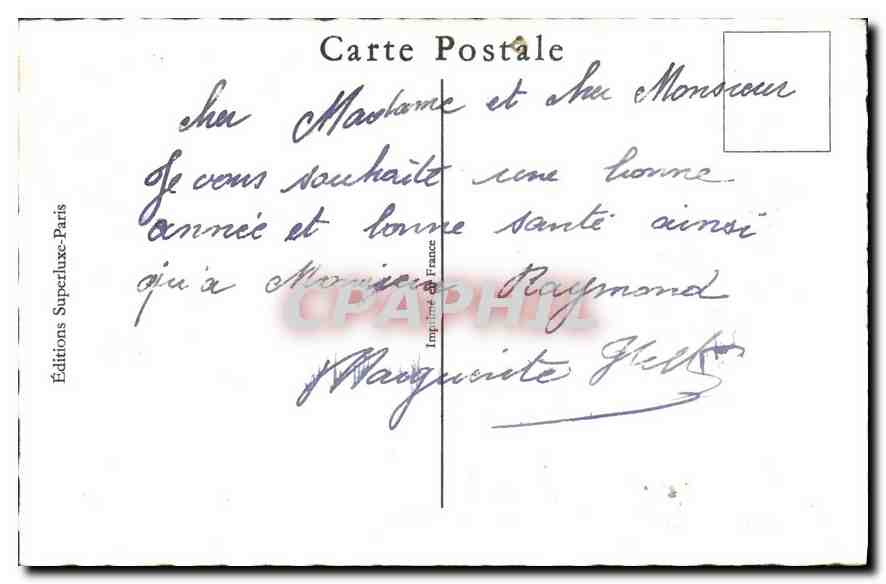 Carte Postale
cher Madame et cher Monsieur
Je vous souhaite une bonne
année et bonne santé ainsi
qu'a Monsieur Raymond
Marguerite
Éditions Superluxe-Paris
Imprimé en France
CPAPHIL